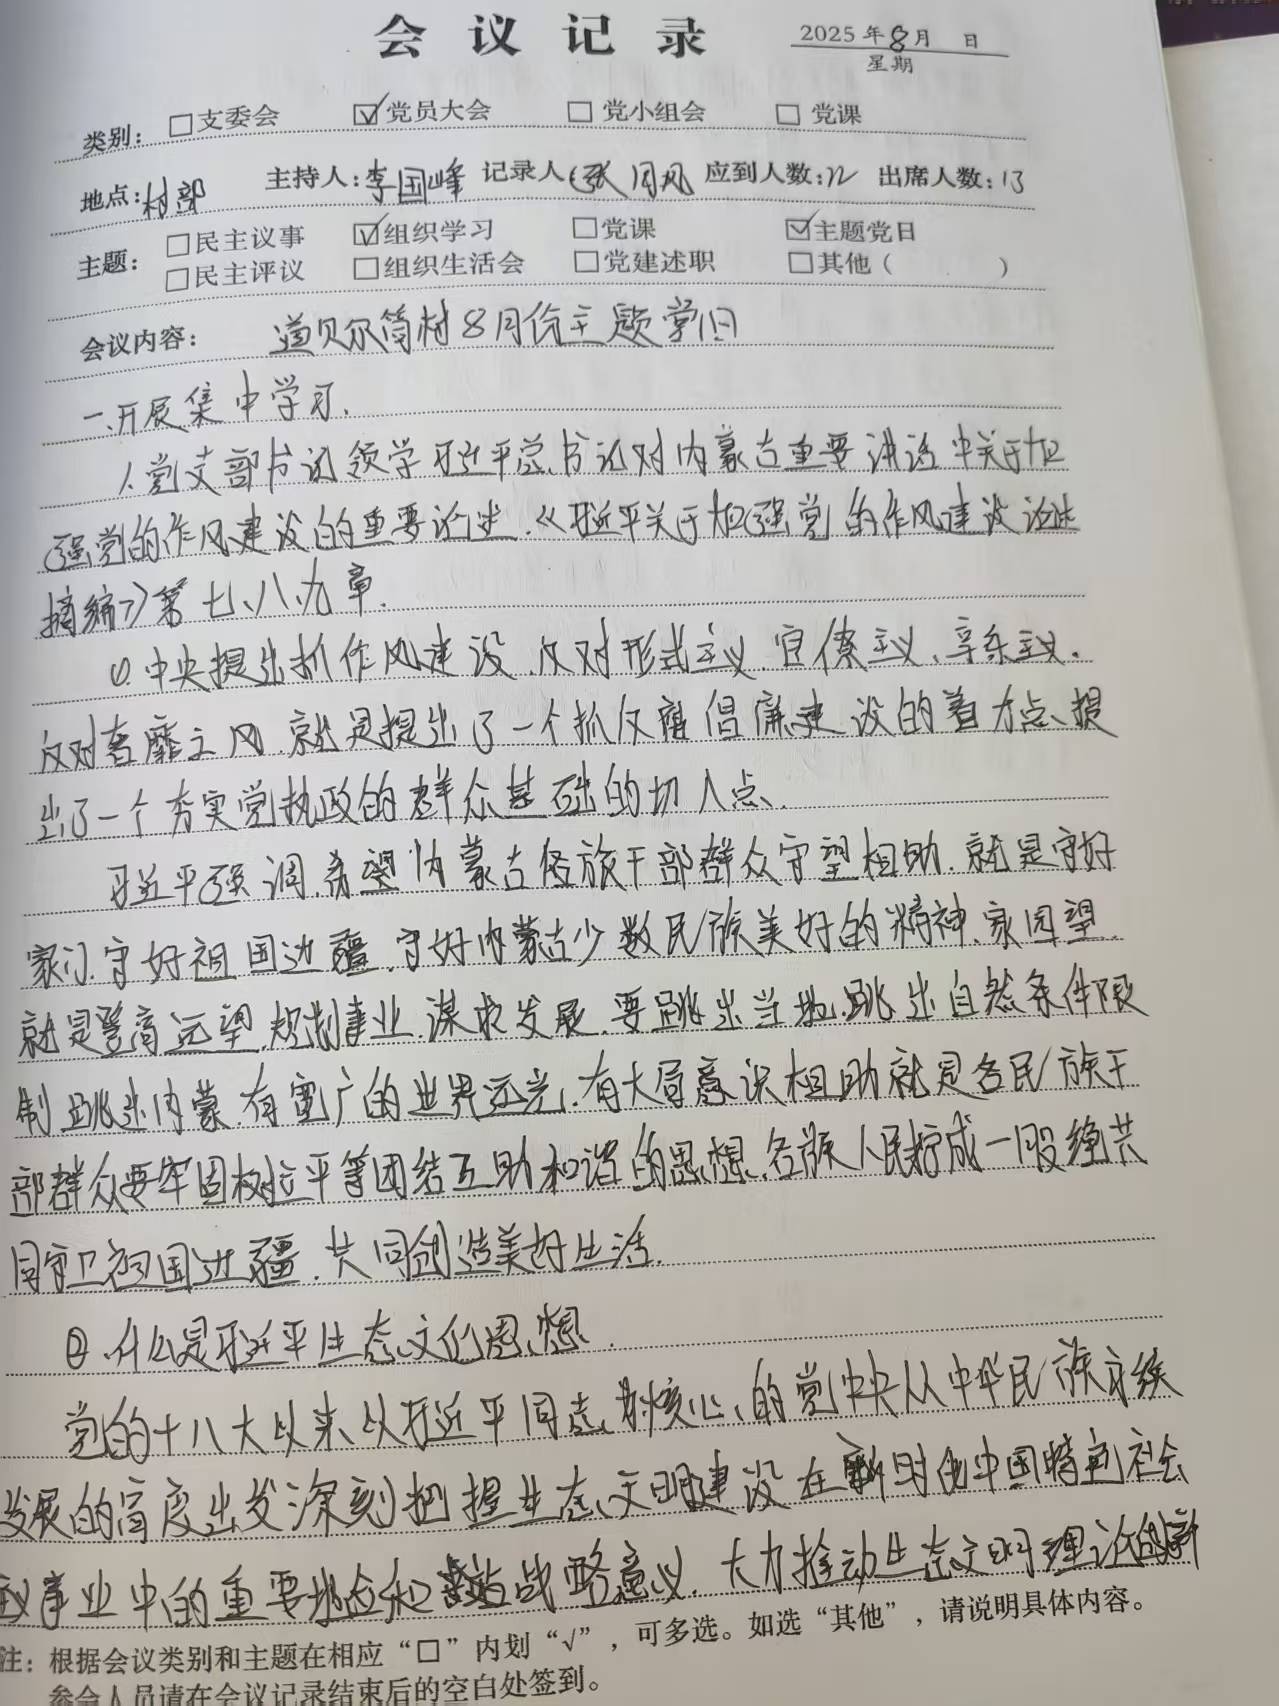 会议记录
2025年8月 日
星期
类别：□支委会 ☑党员大会 □党小组会 □党课
地点：村部 主持人：李国峰 记录人：张凤 应到人数：22 出席人数：13
主题：□民主议事 ☑组织学习 □党课 ☑主题党日
□民主评议 □组织生活会 □党建述职 □其他（ ）
会议内容： 道贝尔筒村8月份主题党日
一、开展集中学习.
1.党支部书记领学习近平总书记对内蒙古重要讲话中关于加
强党的作风建设的重要论述.《习近平关于加强党的作风建设论述
摘编》第七、八、九章.
①.中央提出抓作风建设.反对形式主义.官僚主义、享乐主义.
反对奢靡之风.就是提出了一个抓反腐倡廉建设的着力点、提
出了一个夯实党执政的群众基础的切入点、
习近平强调.希望内蒙古各族干部群众守望相助.就是守好
家门.守好祖国边疆.守好内蒙古少数民族美好的精神、家园望
就是登高远望.规划事业.谋求发展.要跳出当地.跳出自然条件限
制跳出内蒙.有宽广的世界远光.有大局意识相助就是各民族干
部群众要牢固树立平等团结互助和谐的思想.各族人民拧成一股绳共
同守卫祖国边疆.共同创造美好生活.
②.什么是习近平生态文化思想.
党的十八大以来、以习近平同志为核心的党中央从中华民族永续
发展的高度出发深刻把握生态文明建设在新时代中国特色社会
义事业中的重要地位和战略意义.大力推动生态文明理论创新
注：根据会议类别和主题在相应“□”内划“√”，可多选。如选“其他”，请说明具体内容。
参会人员请在会议记录结束后的空白处签到。